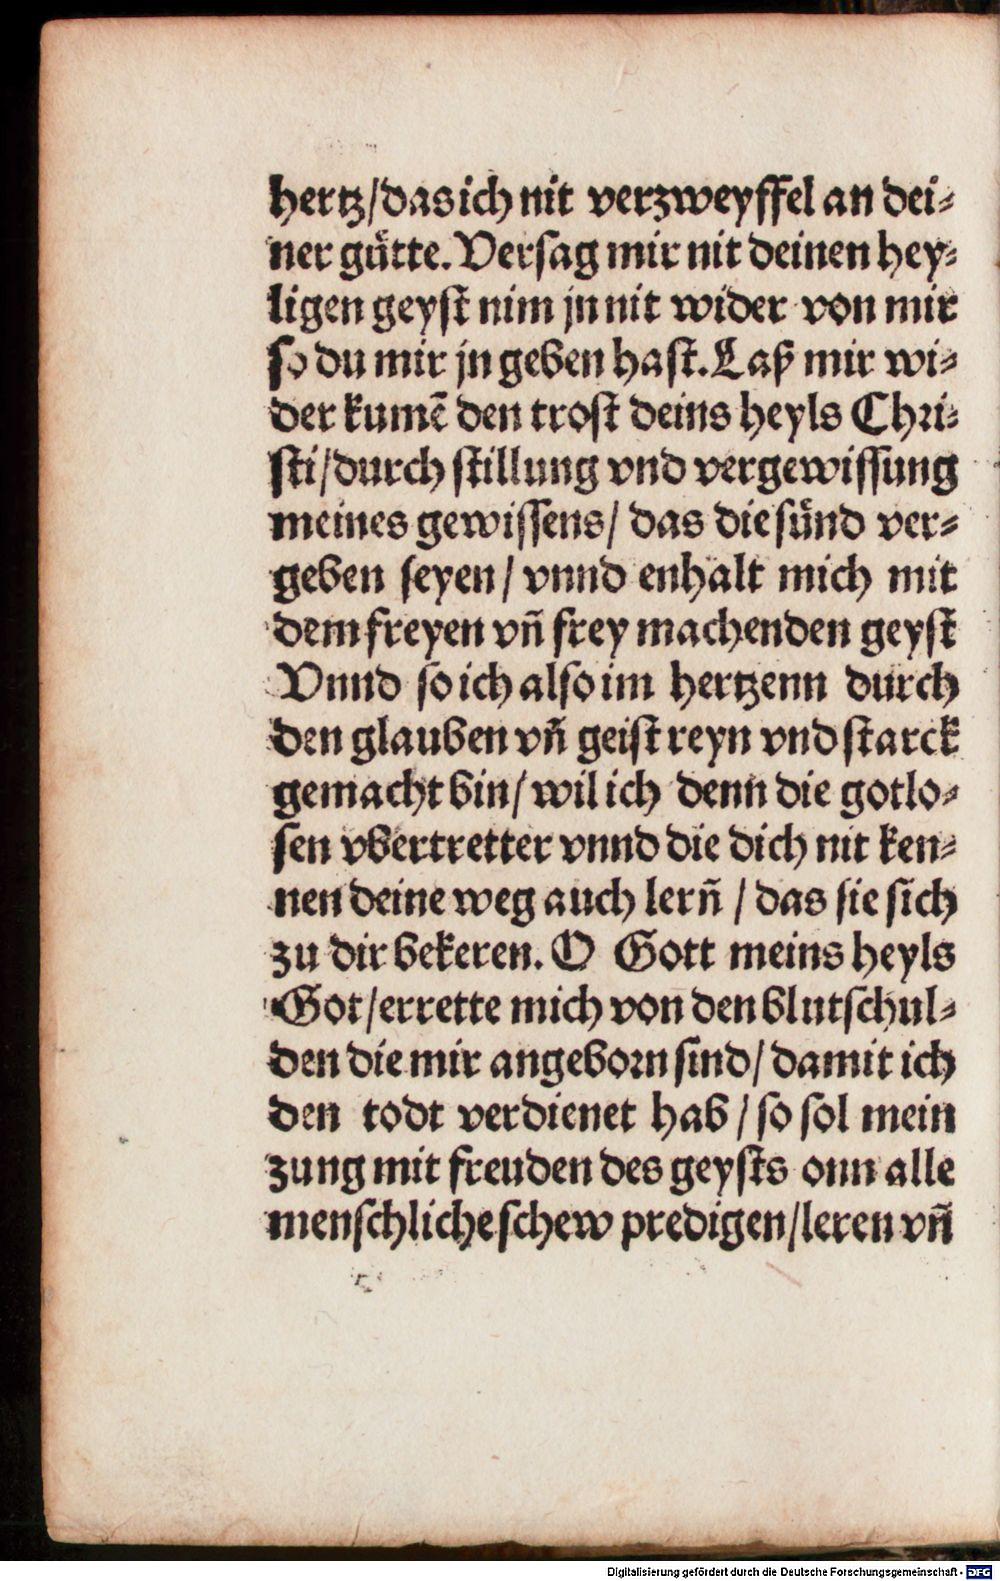 hertz/das ich nit verzweyffel an dei⸗
ner guͤtte. Versag mir nit deinen hey⸗
ligen geyst nim jn nit wider von mir
so du mir jn geben hast. Laß mir wi⸗
der kumē den trost deins heyls Chri⸗
sti/durch stillung vnd vergewissung
meines gewissens/ das die suͤnd ver⸗
geben seyen / vnnd enhalt mich mit
dem freyen vñ frey machenden geyst
Vnnd so ich also im hertzenn durch
den glauben vñ geist reyn vnd starck
gemacht bin/ wil ich denn die gotlo⸗
sen vbertretter vnnd die dich nit ken⸗
nen deine weg auch lern̄ / das sie sich
zu dir bekeren. O Gott meins heyls
Got/errette mich von den blutschul⸗
den die mir angeborn sind/ damit ich
den todt verdienet hab / so sol mein
zung mit freuden des geysts onn alle
menschliche schew predigen/leren vñ
Digitalisierung gefördert durch die Deutsche Forschungsgemeinschaft - DFG